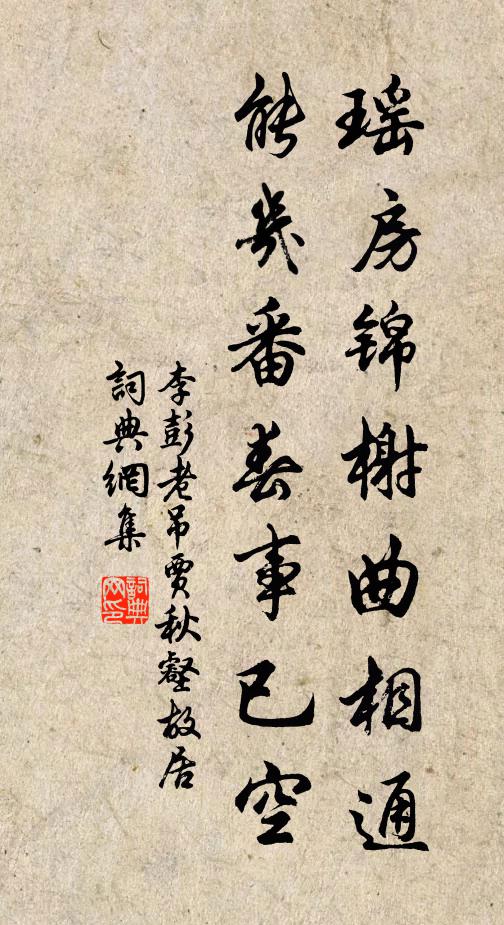 瑶房锦榭曲相通
能幾番春事已空
李彭老吊賈秋壑故居
詞典網集
詞典網印